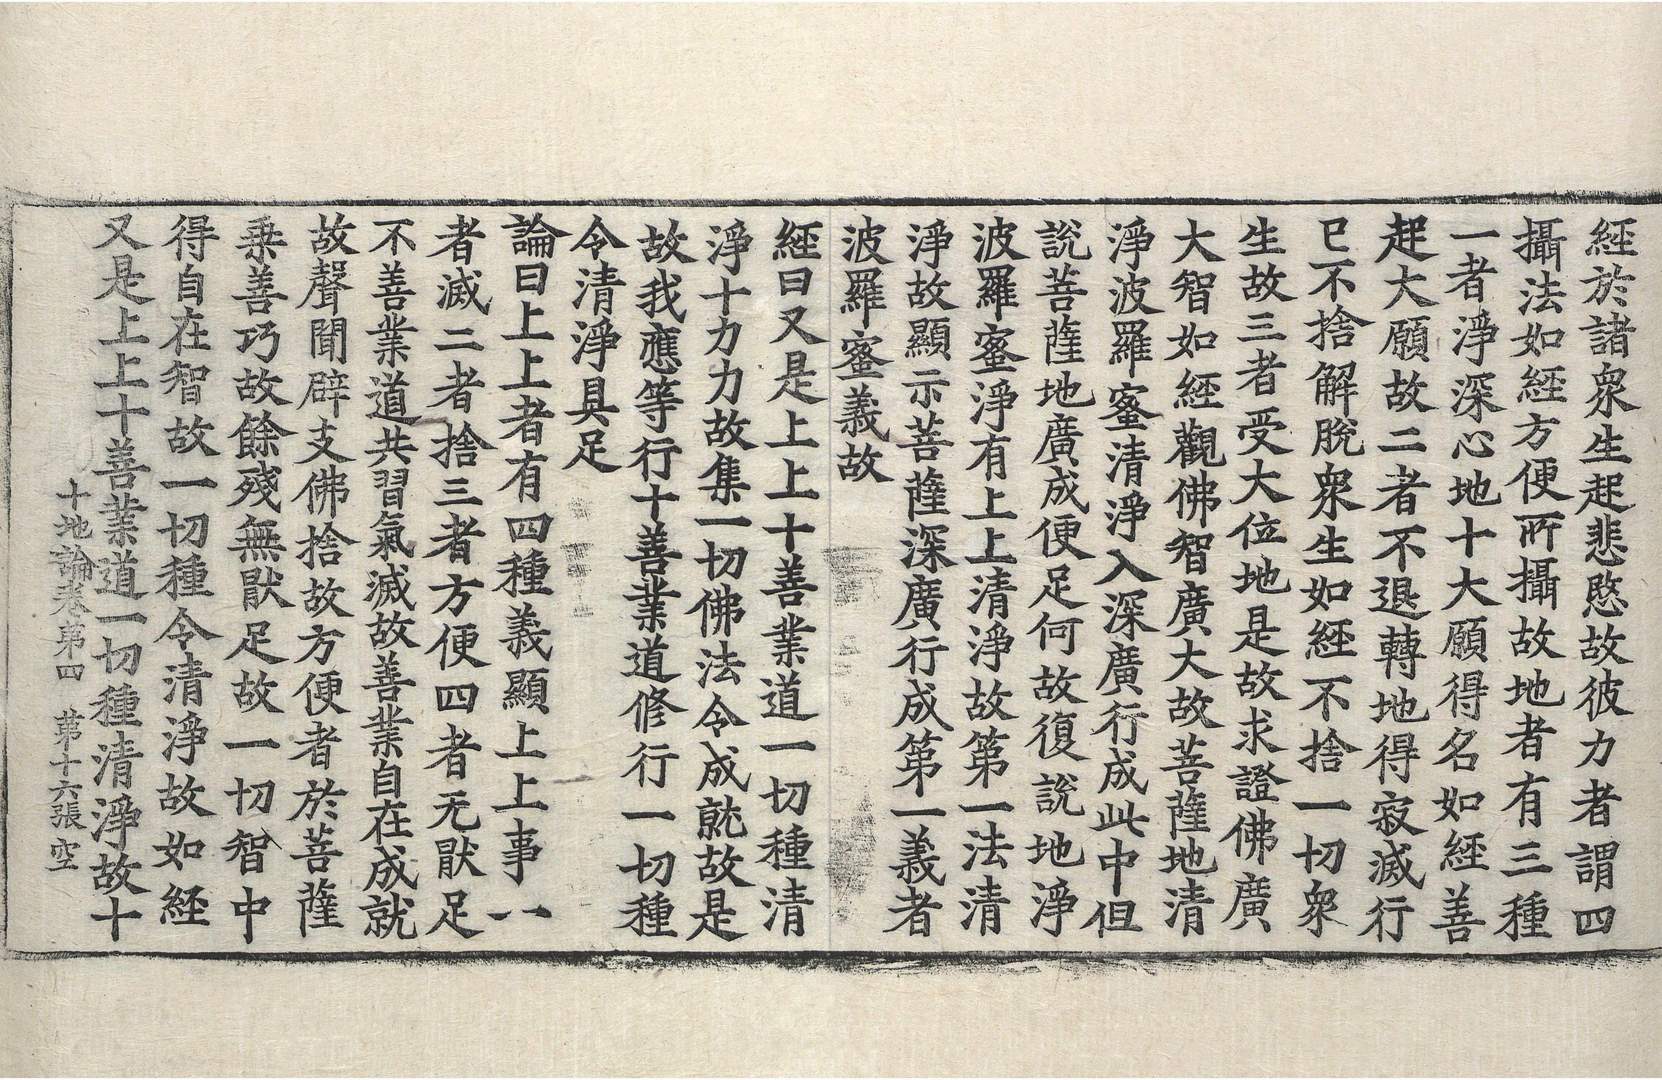 經於諸衆生起悲愍故彼力者謂四
攝法如經方便所攝故地者有三種
一者淨深心地十大願得名如經善
起大願故二者不退轉地得寂滅行
已不捨解脫衆生如經不捨一切衆
生故三者受大位地是故求證佛廣
大智如經觀佛智廣大故菩薩地清
淨波羅蜜清淨入深廣行成此中但
說菩薩地廣成便足何故復說地淨
波羅蜜淨有上上清淨故第一法清
淨故顯示菩薩深廣行成第一義者
波羅蜜義故
經曰又是上上十善業道一切種清
淨十力力故集一切佛法令成就故是
故我應等行十善業道修行一切種
令清淨具足
論曰上上者有四種義顯上上事一
者滅二者捨三者方便四者无猒足
不善業道共習氣滅故善業自在成就
故聲聞辟支佛捨故方便者於菩薩
乗善巧故餘殘無猒足故一切智中
得自在智故一切種令清淨故如經
又是上上十善業道一切種清淨故十
十地論卷第四 第十六張 空